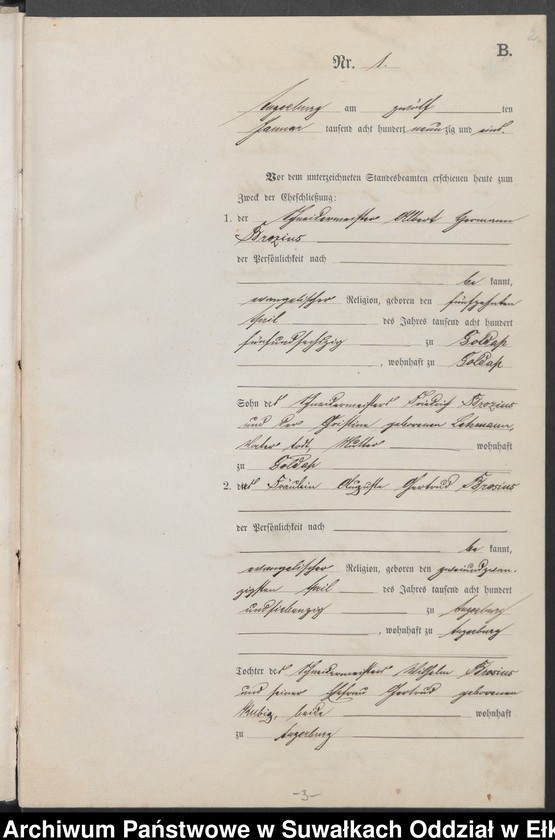 B.
Nr. 1.
Angerburg am zwölf ten
Januar tausend acht hundert neunzig und eins.
Vor dem unterzeichneten Standesbeamten erschienen heute zum
Zweck der Eheschließung:
1. der Schneidermeister Albert Hermann
Brozius
der Persönlichkeit nach
be kannt,
evangelischer Religion, geboren den fünfzehnten
April des Jahres tausend acht hundert
fünfundsechszig zu Goldap
, wohnhaft zu Goldap
Sohn des Schneidermeisters Friedrich Brozius
und der Christine geborenen Lehmann,
Vater todt, Mutter wohnhaft
zu Goldap
2. das Fräulein Auguste Gertrud Brosius
der Persönlichkeit nach
be kannt,
evangelischer Religion, geboren den zweiundzwan-
zigsten April des Jahres tausend acht hundert
undsiebenzig zu Angerburg
, wohnhaft zu Angerburg
Tochter des Schneidermeisters Wilhelm Brosius
und seiner Ehefrau Gertrud geborenen
beide wohnhaft
zu Angerburg
-3-
Archiwum Państwowe w Suwałkach Oddział w Ełk